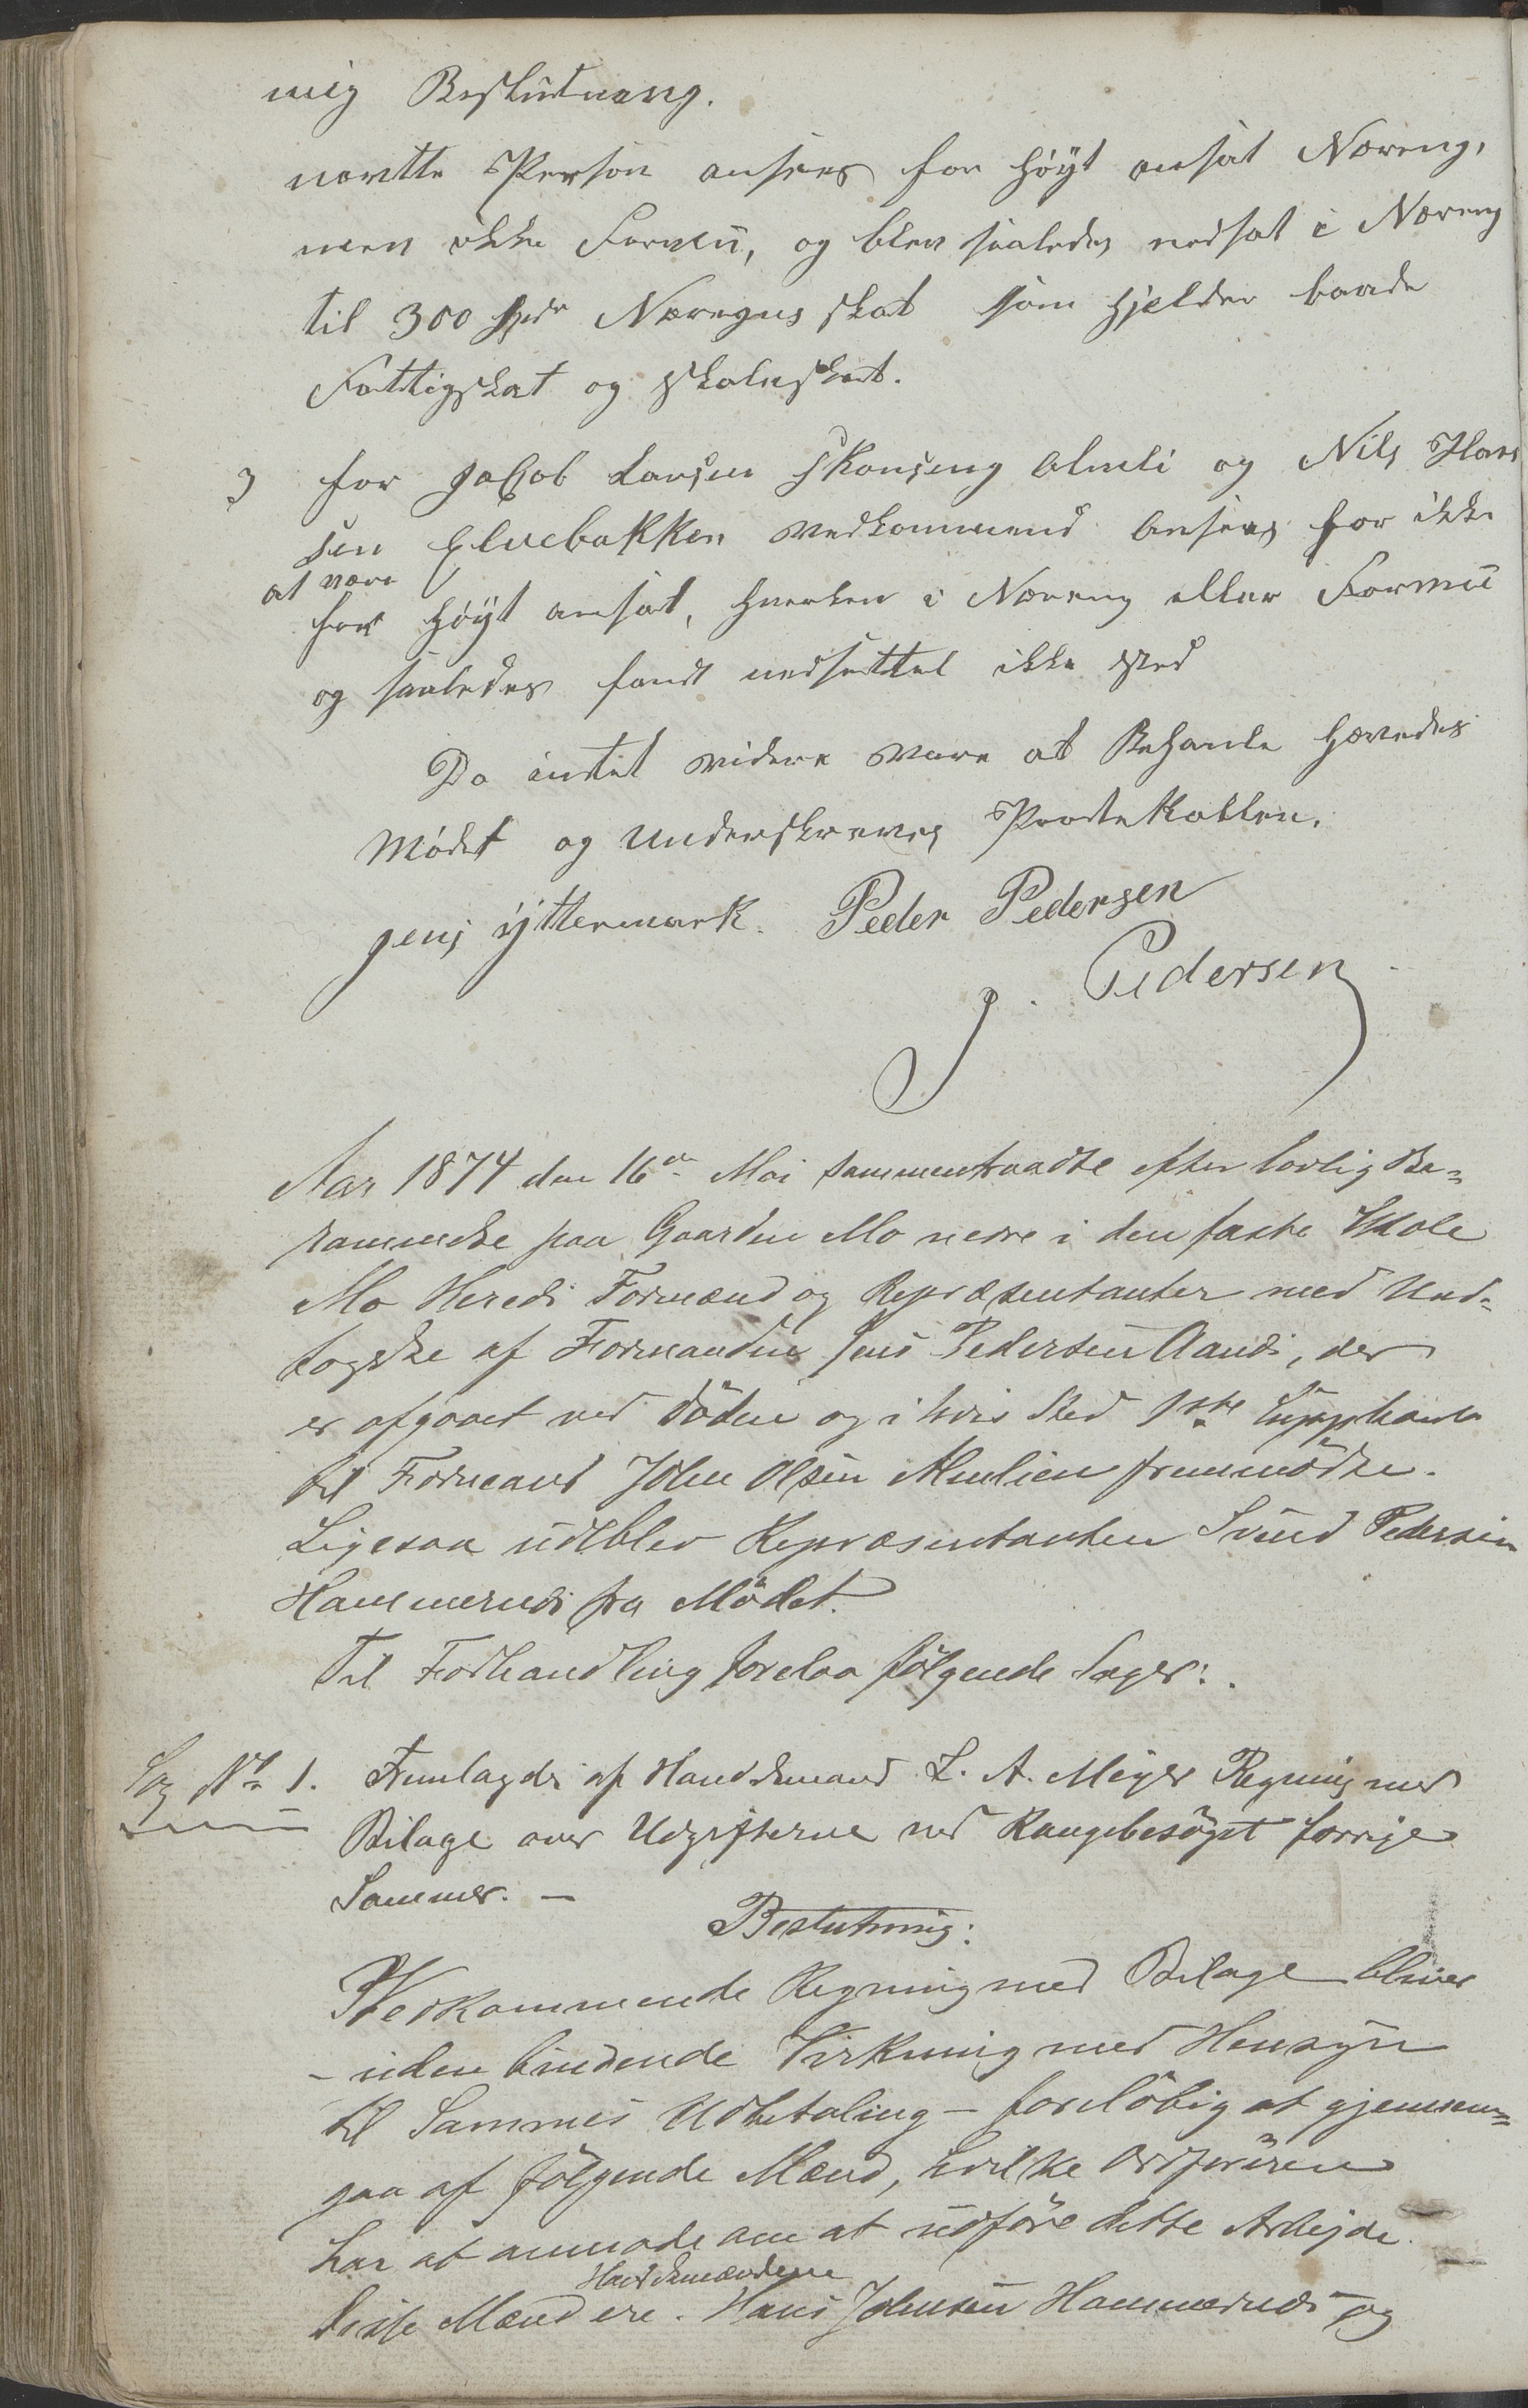 mig Beslutnang.
nævtte Person ansees for høyt ansat Næreng,
men ikke Formu, og blev saaledes nedsat i Næreng
til 300 Spdr Næregns skat som gjelder baade
Fattigskat og skoleskat.
3 for Jacob Larsen Skonseng Almli og Nils Han
sen Elvebakken vedkommend ansees for ikke
at være
for høyt ansat, hverken i Næreng eller Formu
og saaledes fandt nedsettel ikke sted
Da intet videre vare at Behanle hævedes
Mødet og Underskreves Protekollen.
Jens Yttermark. Peder Pedersen
J. Pedersen
Aar 1874 den 16de Mai sammentraadte efter lovlig Be=
rammelse paa Gaarden Mo nedre i den faste Skole
Mo Hereds Formænd og Repræsentanter med Und=
tagelse af Formanden Jens Pedersen Aanes, der
er afgaaet ved Döden og i hvis Sted 1ste Suppleant
til Formand John Olsen Almlien fremmödte.
Ligesaa udeblev Repræsentanten Svend Pedersen
Hammernes fra Mödet.
Til Forhandling forelaa fölgende Sager:
Sag No 1. Fremlagdes af Handelsmand L. A. Meyer Regning med
Bilage over Udgifterne ved Kongebesöget forrige
Sommer. —
Beslutning:
Vedkommende Regning med Bilage bliver
– uden bindende Virkning med Hensyn
til Sammes Udbetaling – foreløbig at gjennem=
gaa af fölgende Mænd, hvilke Ordføreren
har at anmode om at udföre dette Arbejde.
Handelsmændene
Disse Mænd ere. Hans Johnsen Hammernes og